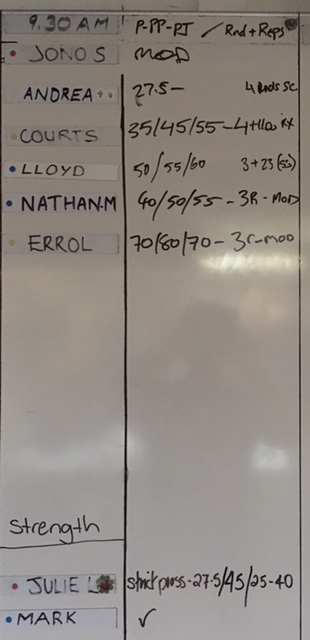 9.30 AM P-PP-RT / Rnd + Reps
JONO S MOD
ANDREA 27.5- 4 rnds SC
COURTS 35/45/55-4+110 RX
LLOYD 50/55/60 3+23 (55)
NATHAN.M 40/50/55-3R-MOD
ERROL 70/80/70-3r-mod
Strength
JULIE L strict press-27.5/45/25-40
MARK ✓